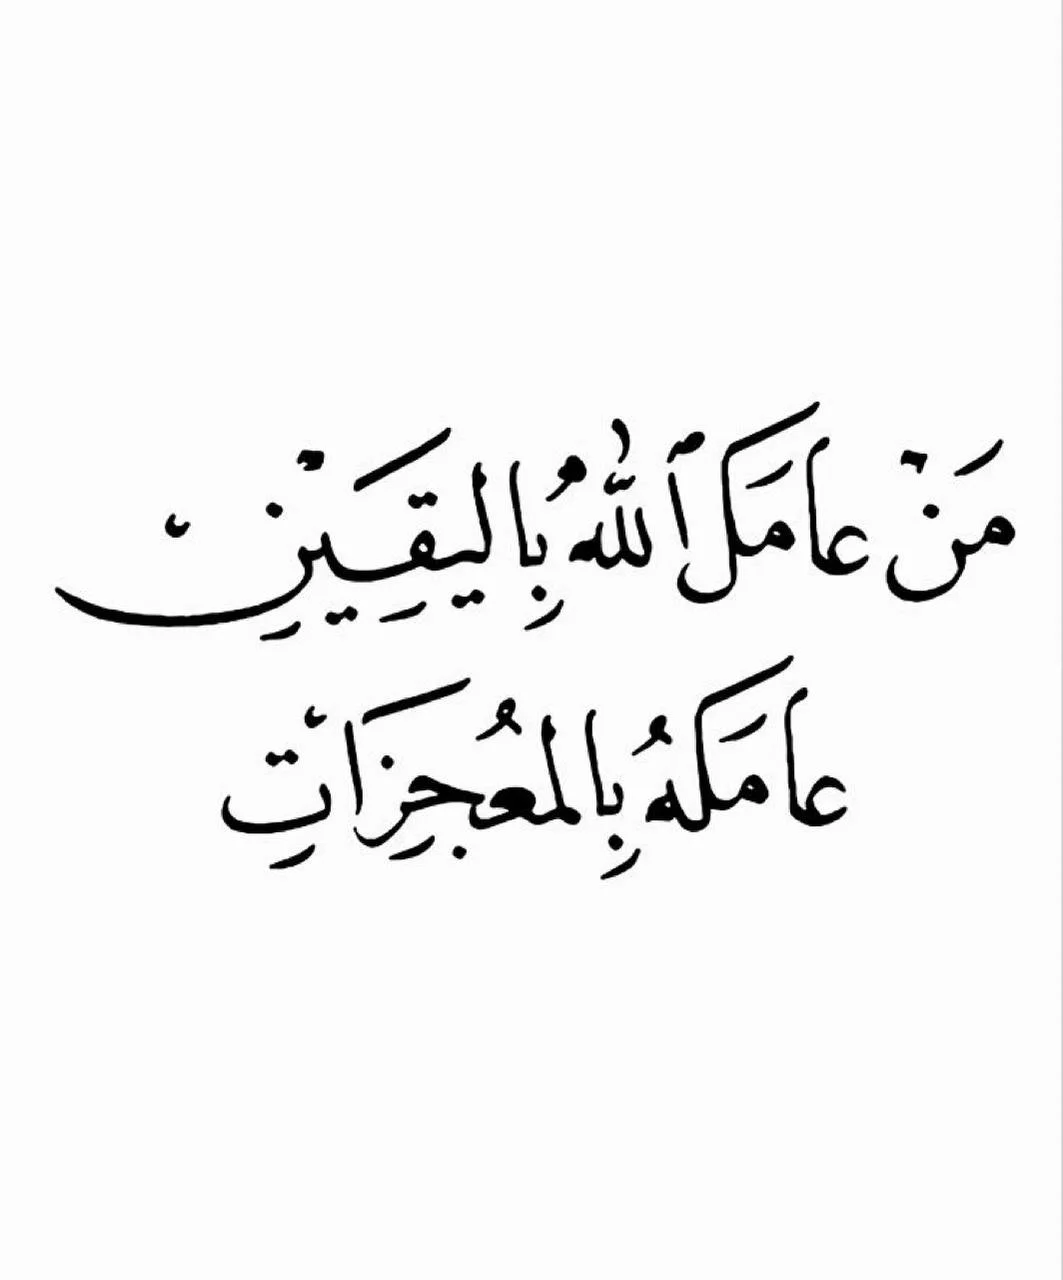 مَنْ عامَلَ ٱللّٰهُ بِاليَقِينِ
عامَلَهُ بِالمُعْجِزَاتِ